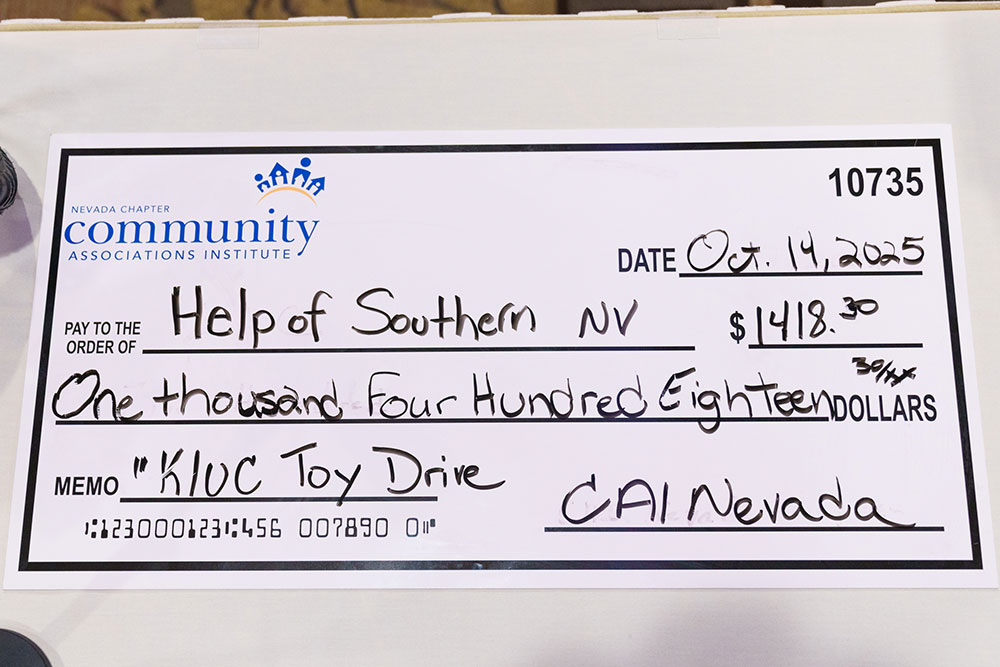 10735
NEVADA CHAPTER
community
ASSOCIATIONS INSTITUTE
DATE Oct. 14, 2025
PAY TO THE
ORDER OF Help of Southern NV $1418.30
One thousand Four Hundred Eighteen 30/xx DOLLARS
MEMO "KLUC Toy Drive
CAI Nevada
⑆123000123⑆456 007890 0⑈